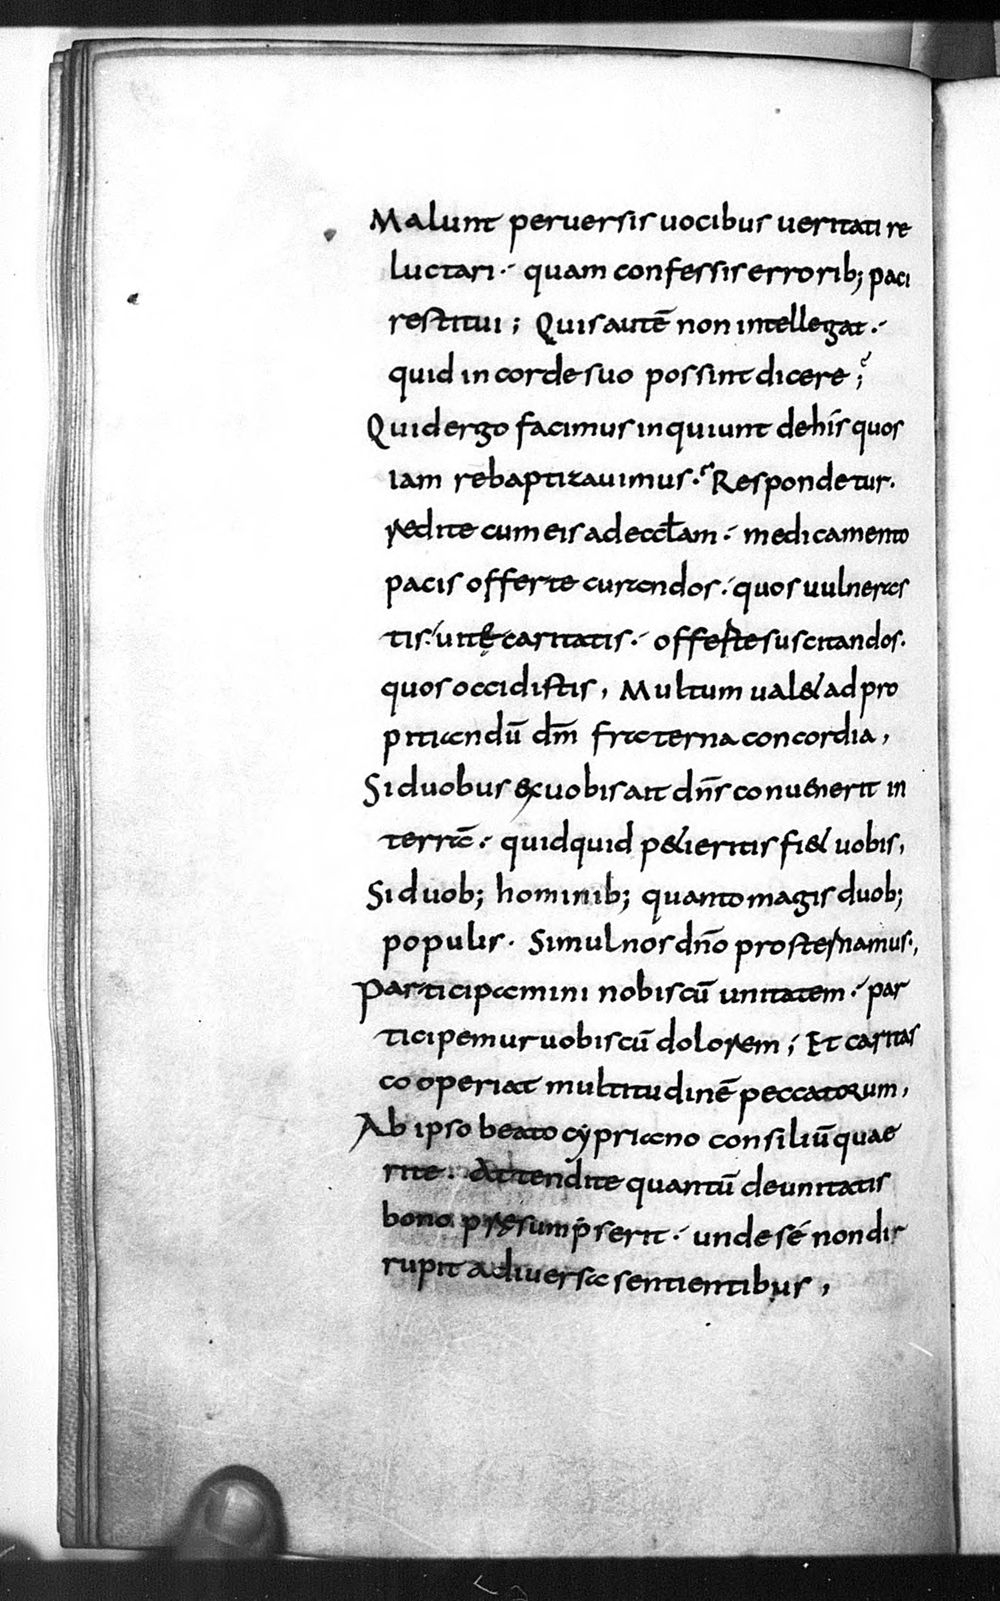 Malunt peruersis uocibus ueritati re
luctari·´ quam confessis errorib; paci
restitui; Quis autē non intellegat·´
quid in corde suo possint dicere;
Quid ergo facimus inquiunt de his quos
iam rebaptizauimus· Respondetur·
redite cum eis ad eccłam·´ medicamento
pacis offerte curandos·´ quos uulneras
tis·´ uitę caritatis·´ offerte suscitandos·
quos occidistis, Multum ualet ad pro
pitiandū dm̄ fraterna concordia,
Si duobus ex uobis ait dn̄s conuenerit in
terra·´ quidquid petieritis fiet uobis,
Si duob; hominib; quanto magis duob;
populis· Simul nos dn̄o prosternamus·,
Participamini nobiscū unitatem·´ par
ticipemur uobiscū dolorem; Et caritas
cooperiat multitudinē peccatorum,
Ab ipso beato cypriano consiliū quae
rite· Attendite quantū de unitatis
bono pręsumpserit·´ unde sé non dis
rupit a diuersa sentientibus,